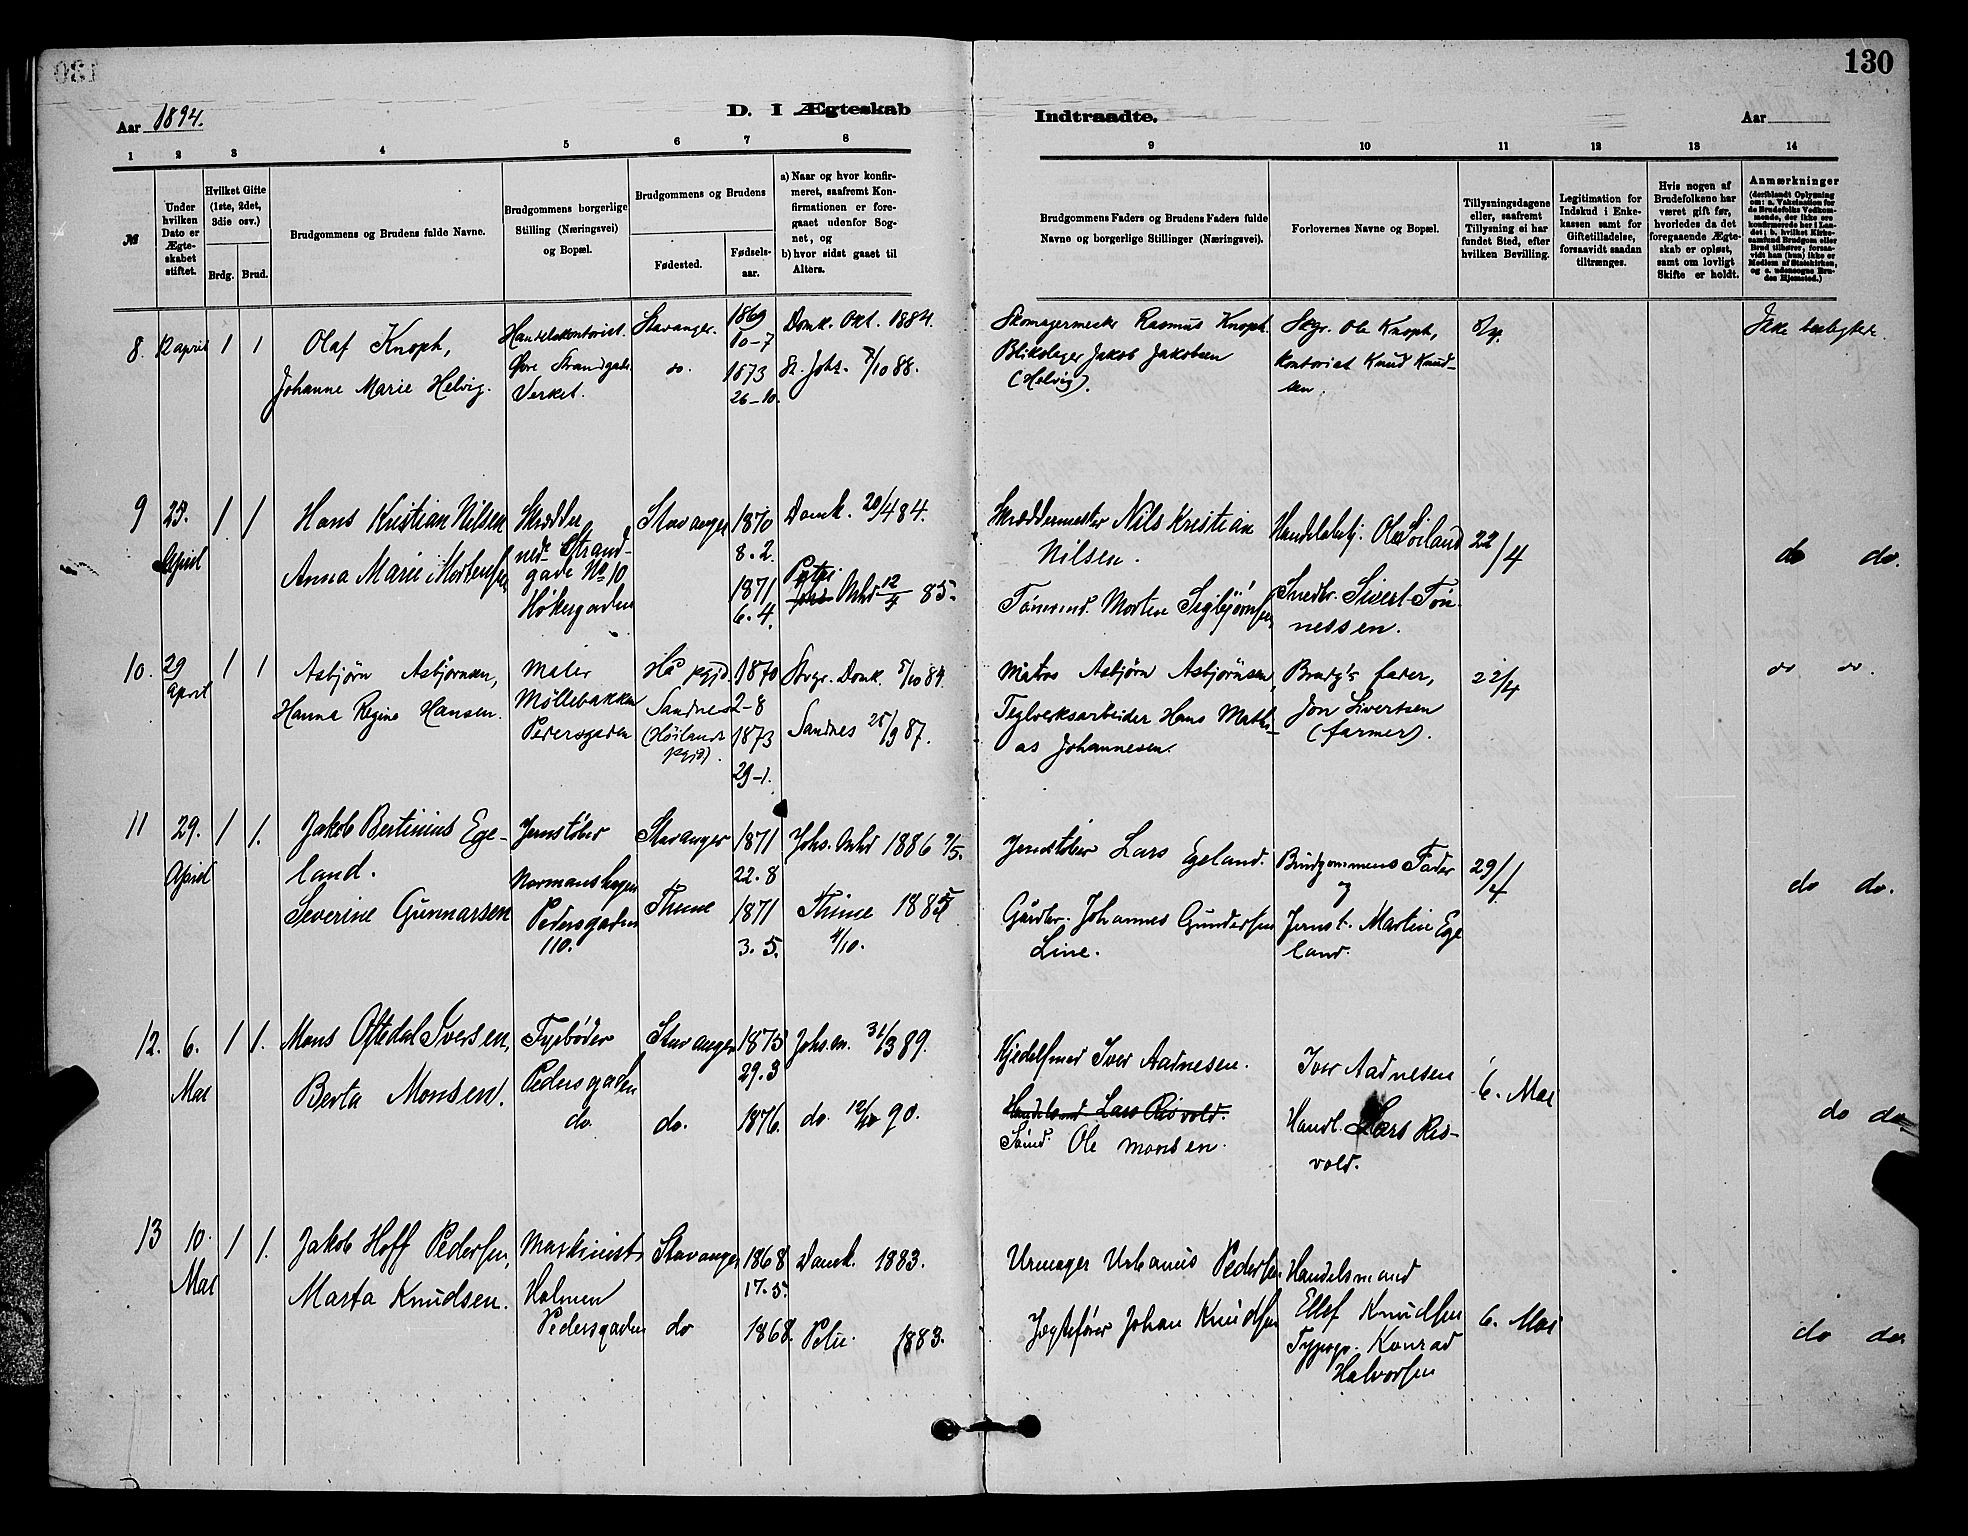 130
Aar 1894.
D. I Ægteskab
Indtraadte.
Aar
1 2 3 4 5 6 7 8 9 10 11 12 13 14
№
Under hvilken Dato er Ægteskabet stiftet.
Hvilket Gifte (1ste, 2det, 3die osv.)
Brdg. Brud.
Brudgommens og Brudens fulde Navne.
Brudgommens borgerlige Stilling (Næringsvei) og Bopæl.
Brudgommens og Brudens
Fødested.
Fødselsaar.
a) Naar og hvor konfirmeret, saafremt Konfirmationen er foregaaet udenfor Sognet, og
b) hvor sidst gaaet til Alters.
Brudgommens Faders og Brudens Faders fulde Navne og borgerlige Stillinger (Næringsvei).
Forlovernes Navne og Bopæl.
Tillysningsdagene eller, saafremt Tillysning ei har fundet Sted, efter hvilken Bevilling.
Legitimation for Indskud i Enkekassen samt for Giftetilladelse, forsaavidt saadan tiltrænges.
Hvis nogen af Brudefolkene har været gift før, hvorledes da det foregaaende Ægteskab er opløst, samt om lovligt Skifte er holdt.
Anmærkninger
(deriblandt Oplysning om: a. Vaksination for de Brudefolks Vedkommende, der ikke ere konfirmerede her i Landet; b. hvilket Kirkesamfund Brudgom eller Brud tilhører, forsaavidt han (hun) ikke er Medlem af Statskirken, og c. udensogns Brudes Hjemsted.)
8. 12 april 1 1
Olaf Knoph,
Johanne Marie Helvig.
Handelskontorist.
Øvre Strandgade.
Verket.
Stavanger.
do.
1869
10-7
1873
26-10.
Domk. Okt. 1884.
St. Johs. 7/10 88.
Skomagermester Rasmus Knoph.
Blikslager Jakob Jakobsen
(Helvig).
Skgr. Ole Knoph,
Kontorist Knud Knudsen.
8/4.
Ikke beslegtet.
9 25. April 1 1
Hans Kristian Nilsen
Anna Marie Mortensen
Skrædder
nedr Strandgade No 10
Høkergaden
Stavanger
1870
8.2.
1871
6.4.
Domk. 20/4 84.
Petri
Mhd 12/4 85.
Skræddermester Nils Kristian
Nilsen.
Tømmermd. Morten Sigbjørnsen
Handelsbetj. Ole Soiland
Snedkr. Sivert Tønnessen.
22/4
do do.
10. 29 April 1 1
Asbjørn Asbjørnsen,
Hanna Regine Hansen.
Maler
Møllebakken
Pedersgaden
Hå pgjd
Sandnes
(Høilands pgjd).
1870
2-8
1873
29-1.
Stvgr. Domk. 5/10 84.
Sandnes 25/9 87.
Matros Asbjørn Asbjørnsen,
Teglverksarbeider Hans Mathias Johannesen.
Brudg's fader,
Jon Sivertsen
(farmer).
22/4
do do.
11 29. April 1 1.
Jakob Bertinius Egeland.
Severine Gunnarsen
Jernstøber
Normanshagen
Pedersgaden
110.
Stavanger
Thime
1871
22.8
1871
3.5.
Johs. Mhd 1886 2/5.
Thime 1885
4/10.
Jernstøber Lars Egeland.
Gårdbr. Johannes Gundersen
Line.
Brudgommens Fader
og
Jernst. Martin Egeland.
29/4
do do.
12. 6. Mai 1 1.
Mons Oftedal Iversen,
Berta Monsen.
Fyrbøder
Pedersgaden
do.
Stavanger
do.
1873
29.3
1876.
Johs. m. 31/3 89.
do 12/10 90.
Kjedelsmed Iver Aadnesen.
Handelsmd Lars Risvold.
Sømd. Ole Monsen.
Iver Aadnesen
Handl. Lars Risvold.
6. Mai
do do
13 10. Mai 1 1.
Jakob Hoff Pedersen,
Marta Knudsen.
Maskinist
Holmen
Pedersgaden
Stavanger
do
1868
17.5.
1868.
Domk. 1883.
Petri 1883.
Urmager Urbanus Pedersen
Jagtefører Johan Knudsen
Handelsmand
Ellef Knudsen
Typogr. Konrad
Halvorsen
6. Mai
do do